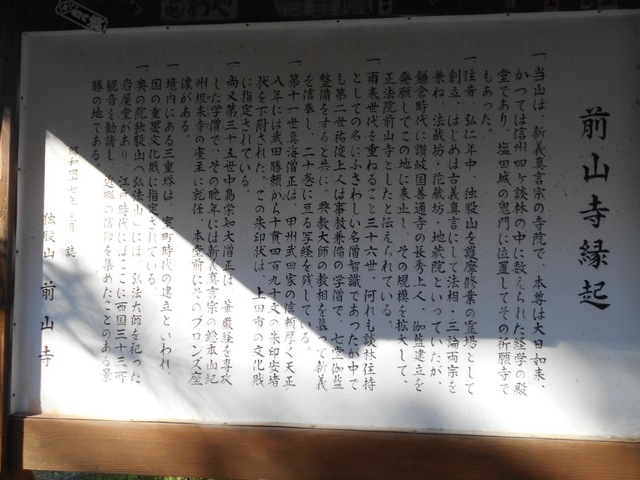 前山寺縁起
一、当山は、新義真言宗の寺院で、本尊は大日如来、
かつては信州四ヶ談林の中に数えられた経学の殿
堂であり、塩田城の鬼門に位置してその祈願寺で
もあった。
一、往昔、弘仁年中、独股山を護摩修業の霊場として
創立、はじめは古義真言にして法相・三論両宗を
兼ね、法蔵坊・花蔵坊・地蔵院といっていたが、
鎌倉時代に讃岐国善通寺の長秀上人、伽藍建立を
発願してこの地に来止し、その規模を拡大して、
正法院前山寺としたと伝えられている。
一、爾来世代を重ねること三十六世、何れも談林住持
としての名にふさわしい名僧智識であったが中で
も第二世祐俊上人は事教兼備の学僧で、七堂伽藍
を整備すると共に、興教大師の教相を慕って新義
を信奉し、二十巻に亘る写経を残している。
一、第十一世真海僧正は、甲州武田家の信頼厚く天正
八年には武田勝頼から十貫四百九十文の朱印安堵
状を下附された。この朱印状は、上田市の文化財
に指定されている。
一、尚又第三十五世中島栄知大僧正は、華厳経を専攻
した学僧で、その晩年には新義真言宗の総本山紀
州根来寺の座主に就任、本堂前にそのブロンズ座
像がある。
一、境内にある三重塔は、室町時代の建立といわれ、
国の重要文化財に指定されている。
一、奥の院独股山(弘法山)には、弘法大師を祀った
岩屋堂があり、江戸時代にはここに西国三十三所
観音を勧請し、近郷の信仰を集めたことのある景
勝の地である。
昭和四七年三月 誌
独股山 前山寺